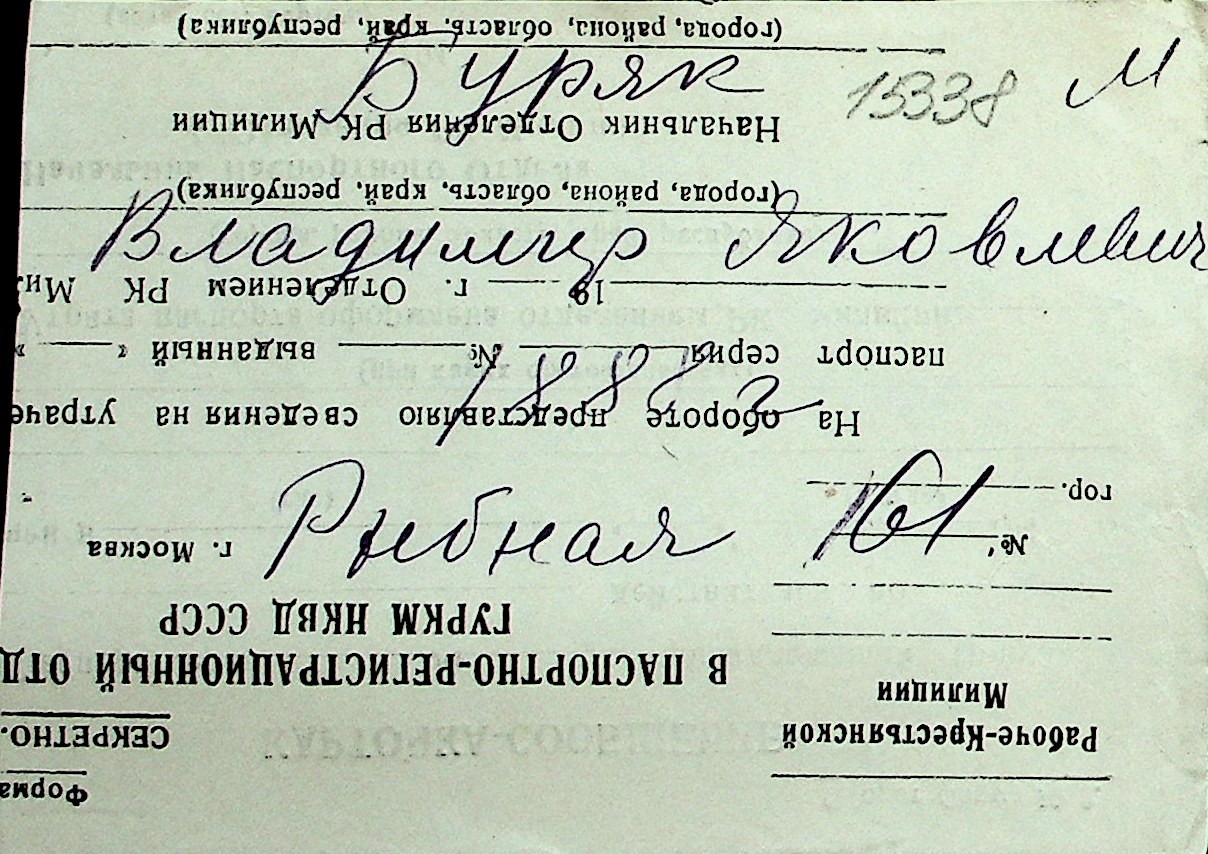 Буряк 15338 М
Владимир Яковлевич
1888 г
Рыбная 161
Форма
Рабоче-Крестьянской СЕКРЕТНО.
Милиции
В ПАСПОРТНО-РЕГИСТРАЦИОННЫЙ ОТД
ГУРКМ НКВД СССР
№ г. Москва
гор.
На обороте представляю сведения на утраче
паспорт серия № выданный « »
19 г. Отделением РК Ми
(города, района, область, край, республика)
Начальник Отделения РК Милиции
(города, района, область, край, республика)